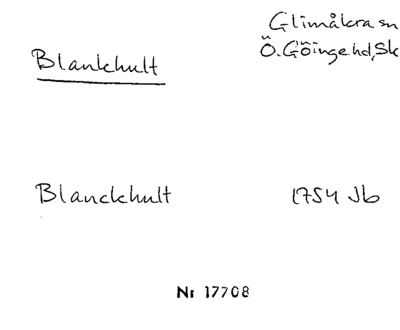 Glimåkra sn
Blankhult
Ö. Göinge hd, Sk
Blanckhult 1754 Jb
Nr 17708